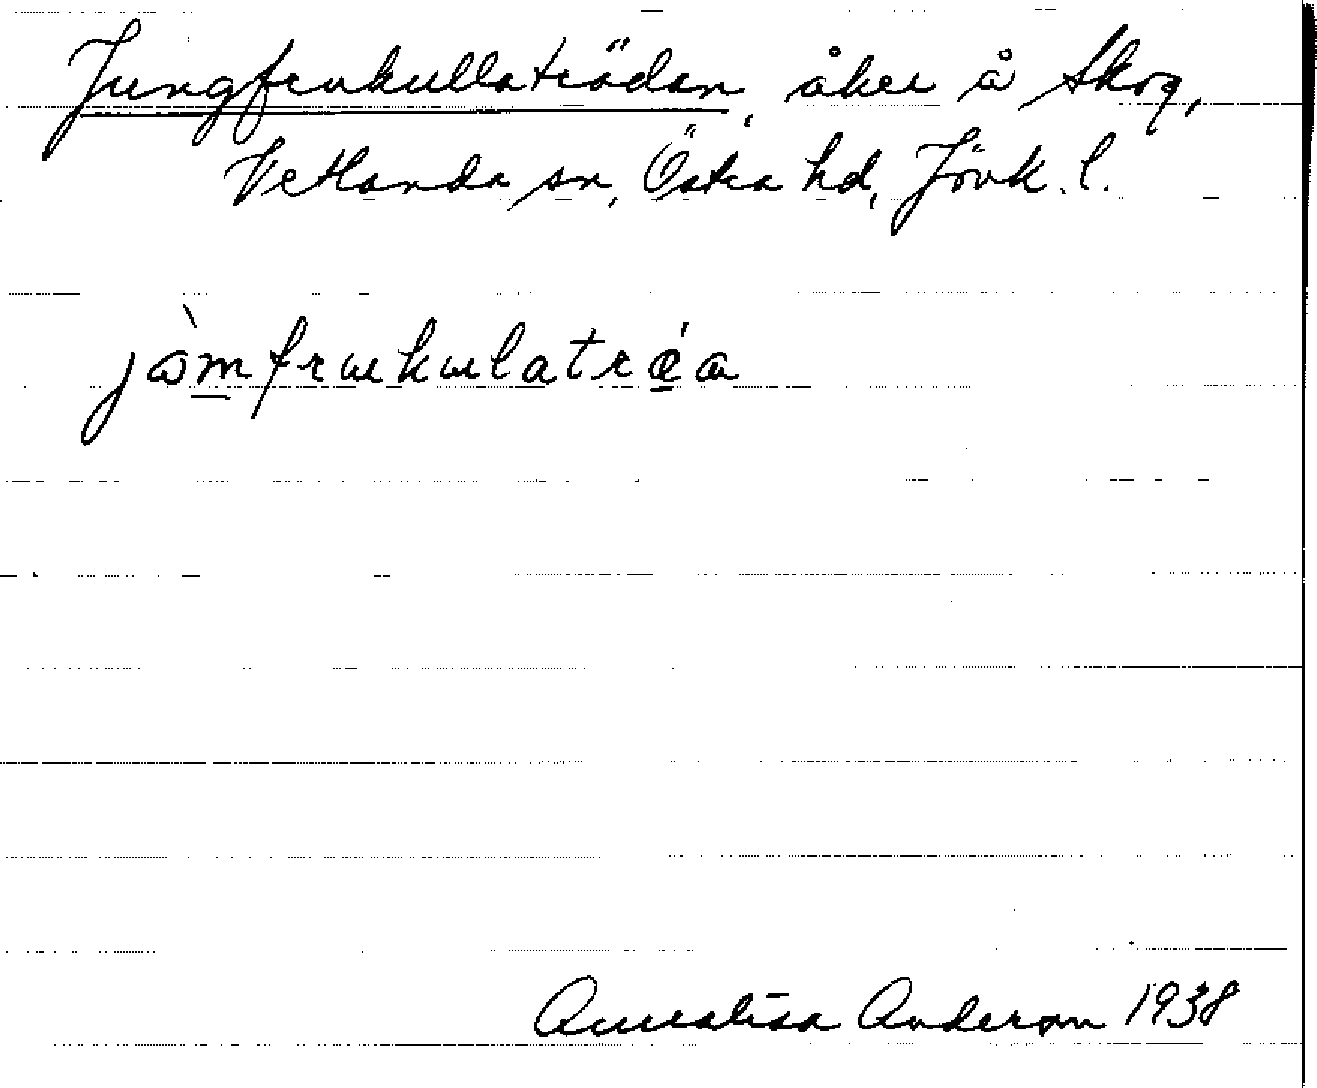 Jungfrukullaträdan, åker å Skog,
Vetlanda sn, Östra hd, Jönk. l.
jòmfrukulatrǿa
Annalisa Anderson 1938